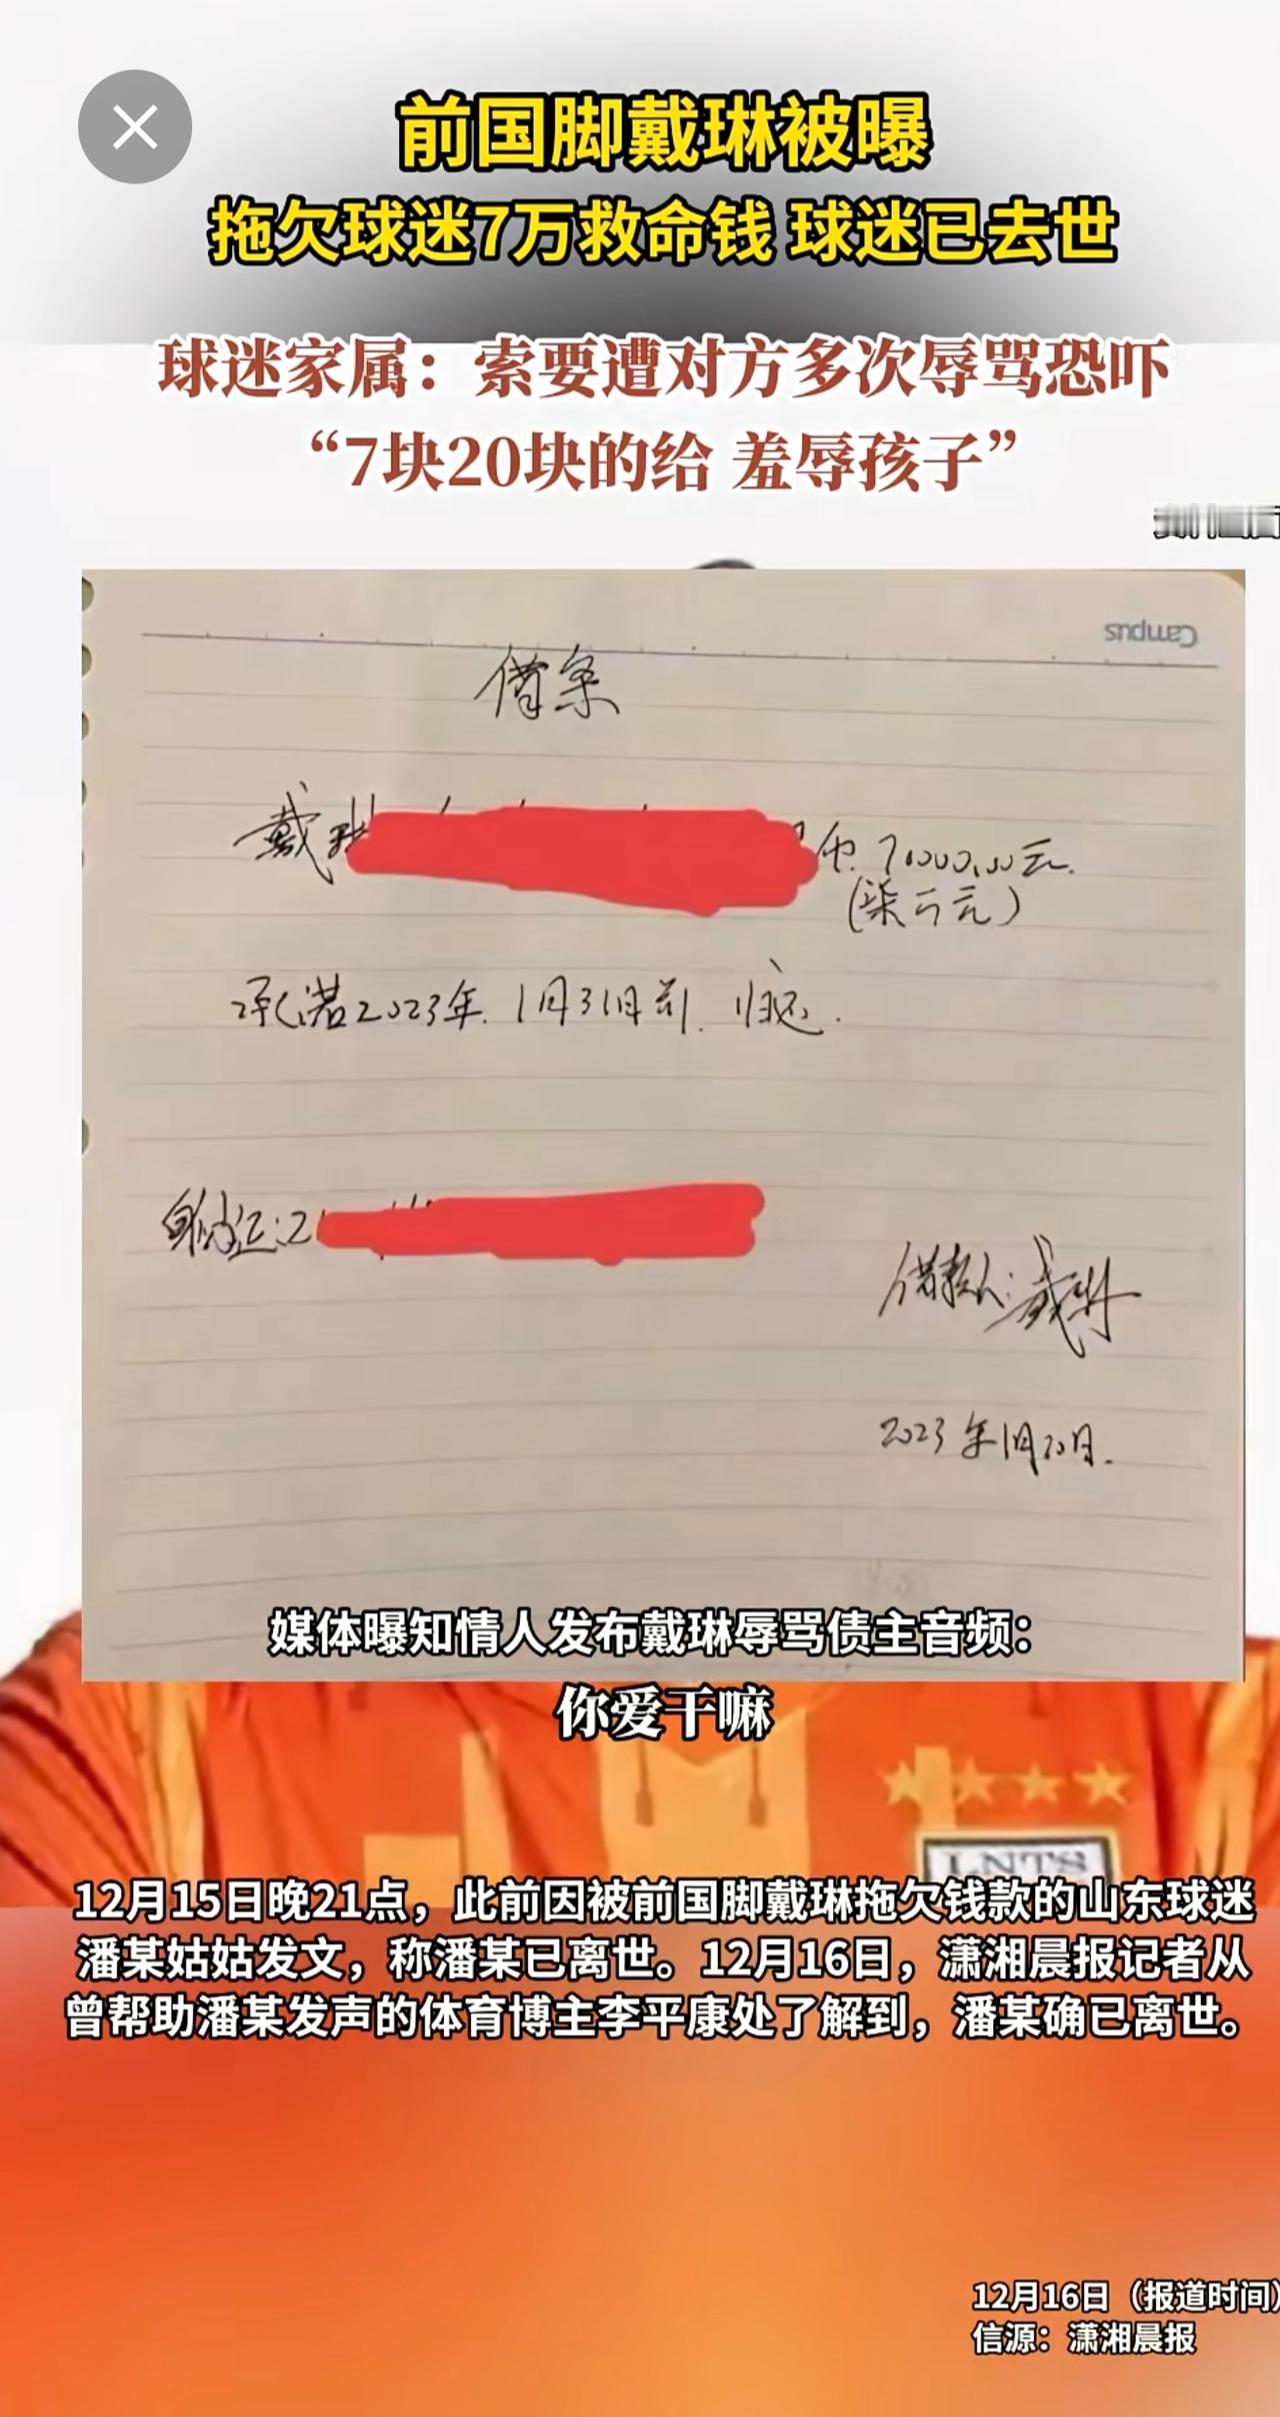 前国脚戴琳被曝
拖欠球迷7万救命钱 球迷已去世
球迷家属：索要遭对方多次辱骂恐吓
“7块20块的给 羞辱孩子”
Campus
借条
戴琳
币.71000.00元.
(柒
元)
承诺2023年.1月31日前.归还.
身份证:2
借款人:戴琳
2023年1月20日.
媒体曝知情人发布戴琳辱骂债主音频：
你爱干嘛
LNTS
12月15日晚21点，此前因被前国脚戴琳拖欠钱款的山东球迷
潘某姑姑发文，称潘某已离世。12月16日，潇湘晨报记者从
曾帮助潘某发声的体育博主李平康处了解到，潘某确已离世。
12月16日（报道时间）
信源：潇湘晨报